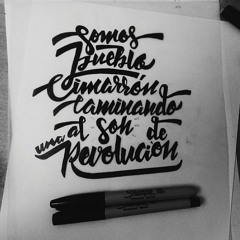 Somos
Pueblo
Cimarrón
Caminando
al Son de
una Revolución